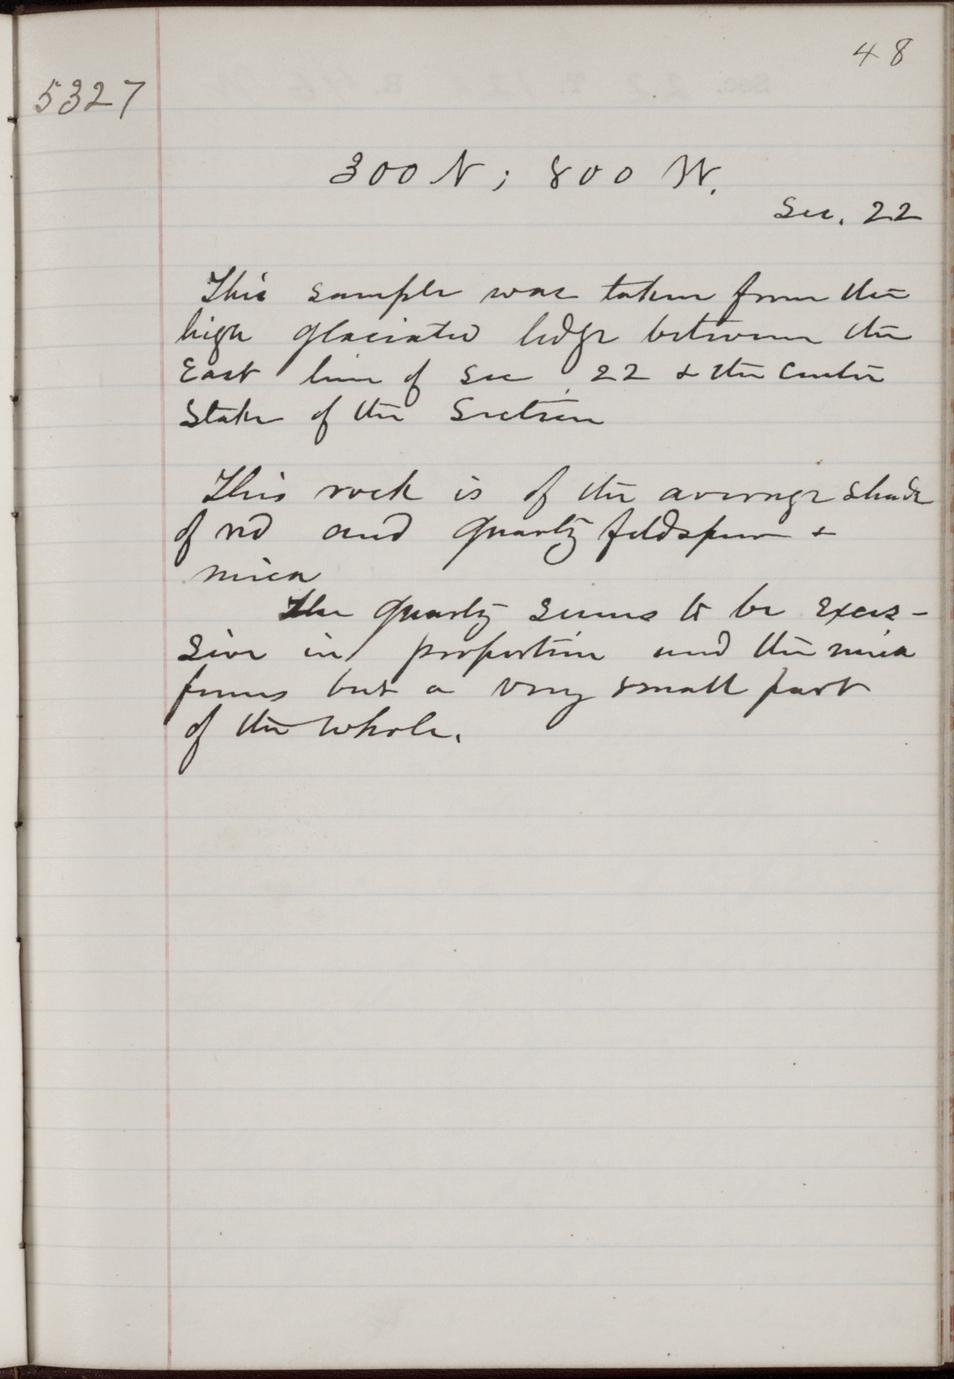 48
5327
300 N; 800 W.
Sec. 22
This sample was taken from the
high glaciated ledge between the
East line of Sec 22 & the Center
Stake of the Section
This rock is of the average shade
of red and quartz feldspar &
mica
The quartz seems to be exces-
sive in proportion and the mica
forms but a very small part
of the whole.